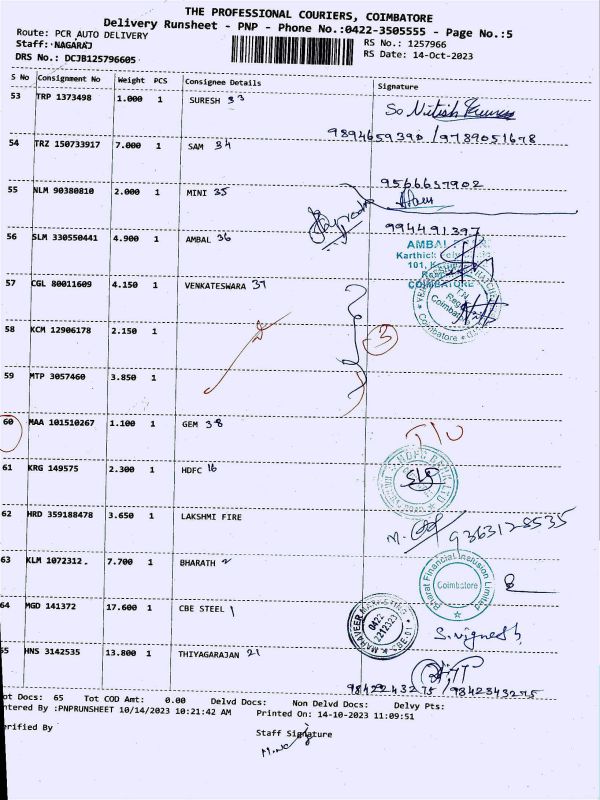 THE PROFESSIONAL COURIERS, COIMBATORE
Delivery Runsheet - PNP - Phone No.:0422-3505555 - Page No.:5
Route: PCR AUTO DELIVERY
RS No.: 1257966
Staff: NAGARAJ
RS Date: 14-Oct-2023
DRS No.: DCJB125796605
S No Consignment No Weight PCS Consignee Details Signature
53 TRP 1373498 1.000 1 SURESH 33
So Nitish Kumar
9894659390 / 9789051678
54 TRZ 150733917 7.000 1 SAM 34
9566637902
55 NLM 90380810 2.000 1 MINI 35
994491397
56 SLM 330550441 4.900 1 AMBAL 36
AMBAL
Karthick
101,
COIMBATORE
57 CGL 80011609 4.150 1 VENKATESWARA 37
Coimbatore
58 KCM 12906178 2.150 1
3
59 MTP 3057460 3.850 1
60 MAA 101510267 1.100 1 GEM 38
61 KRG 149575 2.300 1 HDFC 16
HDFC BANK LTD
62 HRD 359188478 3.650 1 LAKSHMI FIRE
9363128535
63 KLM 1072312. 7.700 1 BHARATH 2
Bharat Financial Inclusion Limited
Coimbatore
64 MGD 141372 17.600 1 CBE STEEL 1
MAHAVEER
0422
2212323
CBE-01
S. Vignesh
65 HNS 3142535 13.800 1 THIYAGARAJAN 21
9842243275 / 9842343275
ot Docs: 65 Tot COD Amt: 0.00 Delvd Docs: Non Delvd Docs: Delvy Pts:
ntered By :PNPRUNSHEET 10/14/2023 10:21:42 AM Printed On: 14-10-2023 11:09:51
erified By Staff Signature